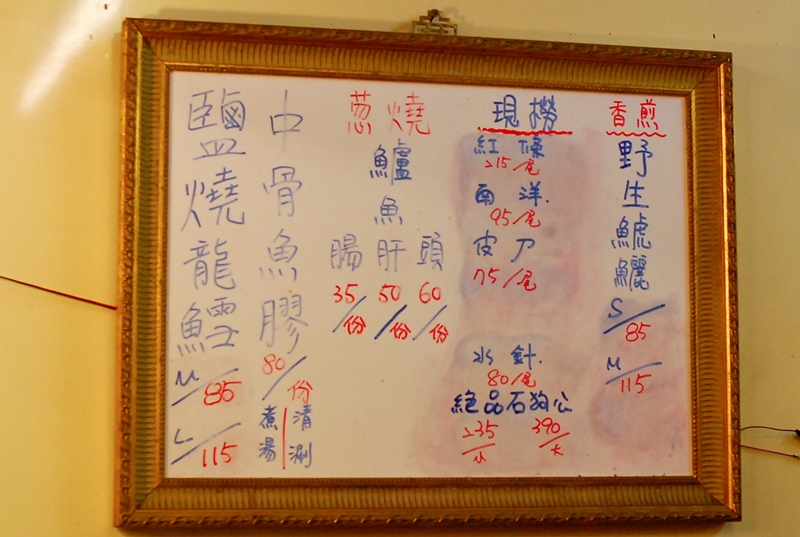 香煎
野生鯱鱺
S/85
M/115
現撈
紅條
215/尾
南洋.
95/尾
皮刀
75/尾
水針.
80/尾
絕品石狗公
235/小
390/大
葱燒
鱸魚
頭
60/份
肝
50/份
腸
35/份
中骨魚膠
80/份
清涮
煮湯
鹽燒龍鱈
M/85
L/115